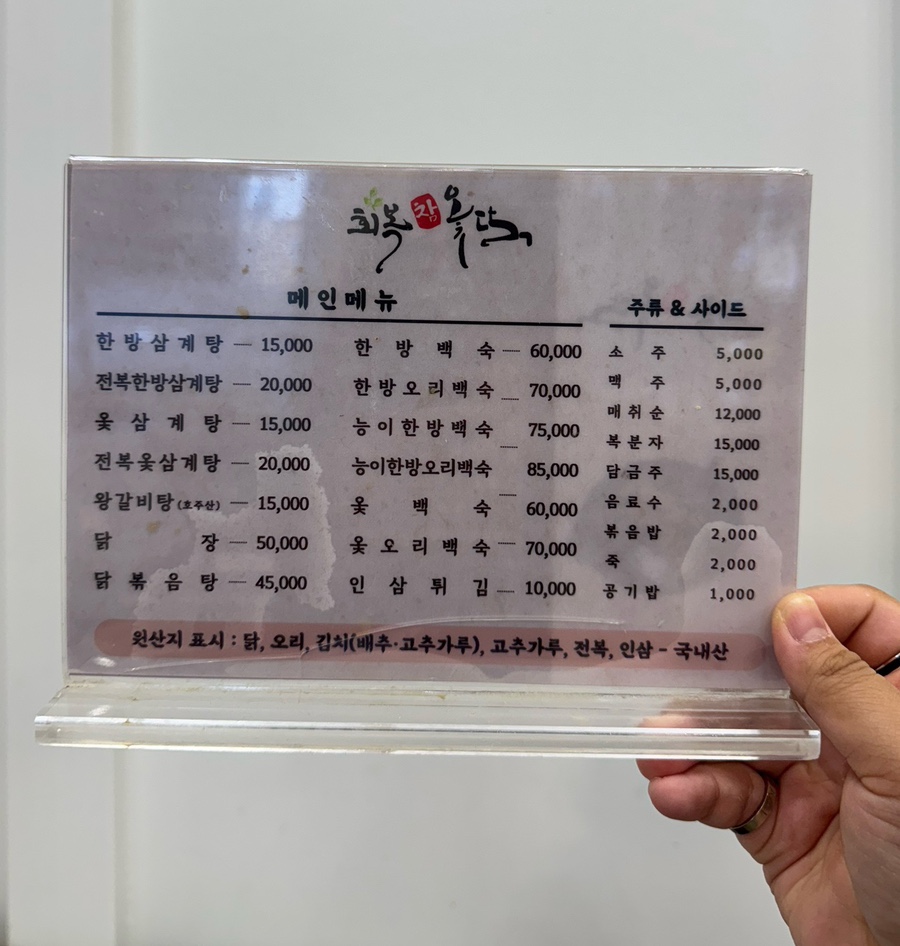 회복 참 옻닭
메인메뉴
한방삼계탕 15,000
전복한방삼계탕 20,000
옻삼계탕 15,000
전복옻삼계탕 20,000
왕갈비탕(호주산) 15,000
닭장 50,000
닭볶음탕 45,000
한방백숙 60,000
한방오리백숙 70,000
능이한방백숙 75,000
능이한방오리백숙 85,000
옻백숙 60,000
옻오리백숙 70,000
인삼튀김 10,000
주류 & 사이드
소주 5,000
맥주 5,000
매취순 12,000
복분자 15,000
담금주 15,000
음료수 2,000
볶음밥 2,000
죽 2,000
공기밥 1,000
원산지 표시 : 닭, 오리, 김치(배추·고추가루), 고추가루, 전복, 인삼 - 국내산